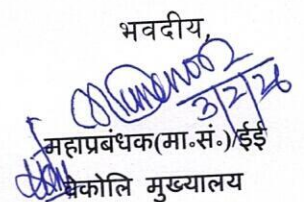 भवदीय,
3/2/26
महाप्रबंधक(मा॰सं॰)/ईई
वेकोलि मुख्यालय